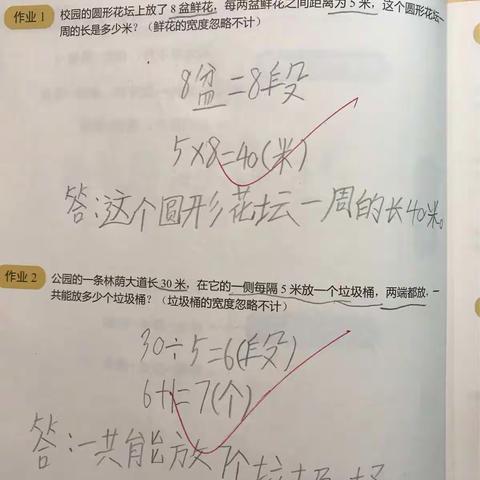 作业 1 校园的圆形花坛上放了 8 盆鲜花，每两盆鲜花之间距离为 5 米，这个圆形花坛一
周的长是多少米？（鲜花的宽度忽略不计）
8盆=8段
5×8=40(米)
答:这个圆形花坛一周的长40米。
作业 2 公园的一条林荫大道长 30 米，在它的一侧每隔 5 米放一个垃圾桶，两端都放，一
共能放多少个垃圾桶？（垃圾桶的宽度忽略不计）
30÷5=6(段)
6+1=7(个)
答:一共能放7个垃圾